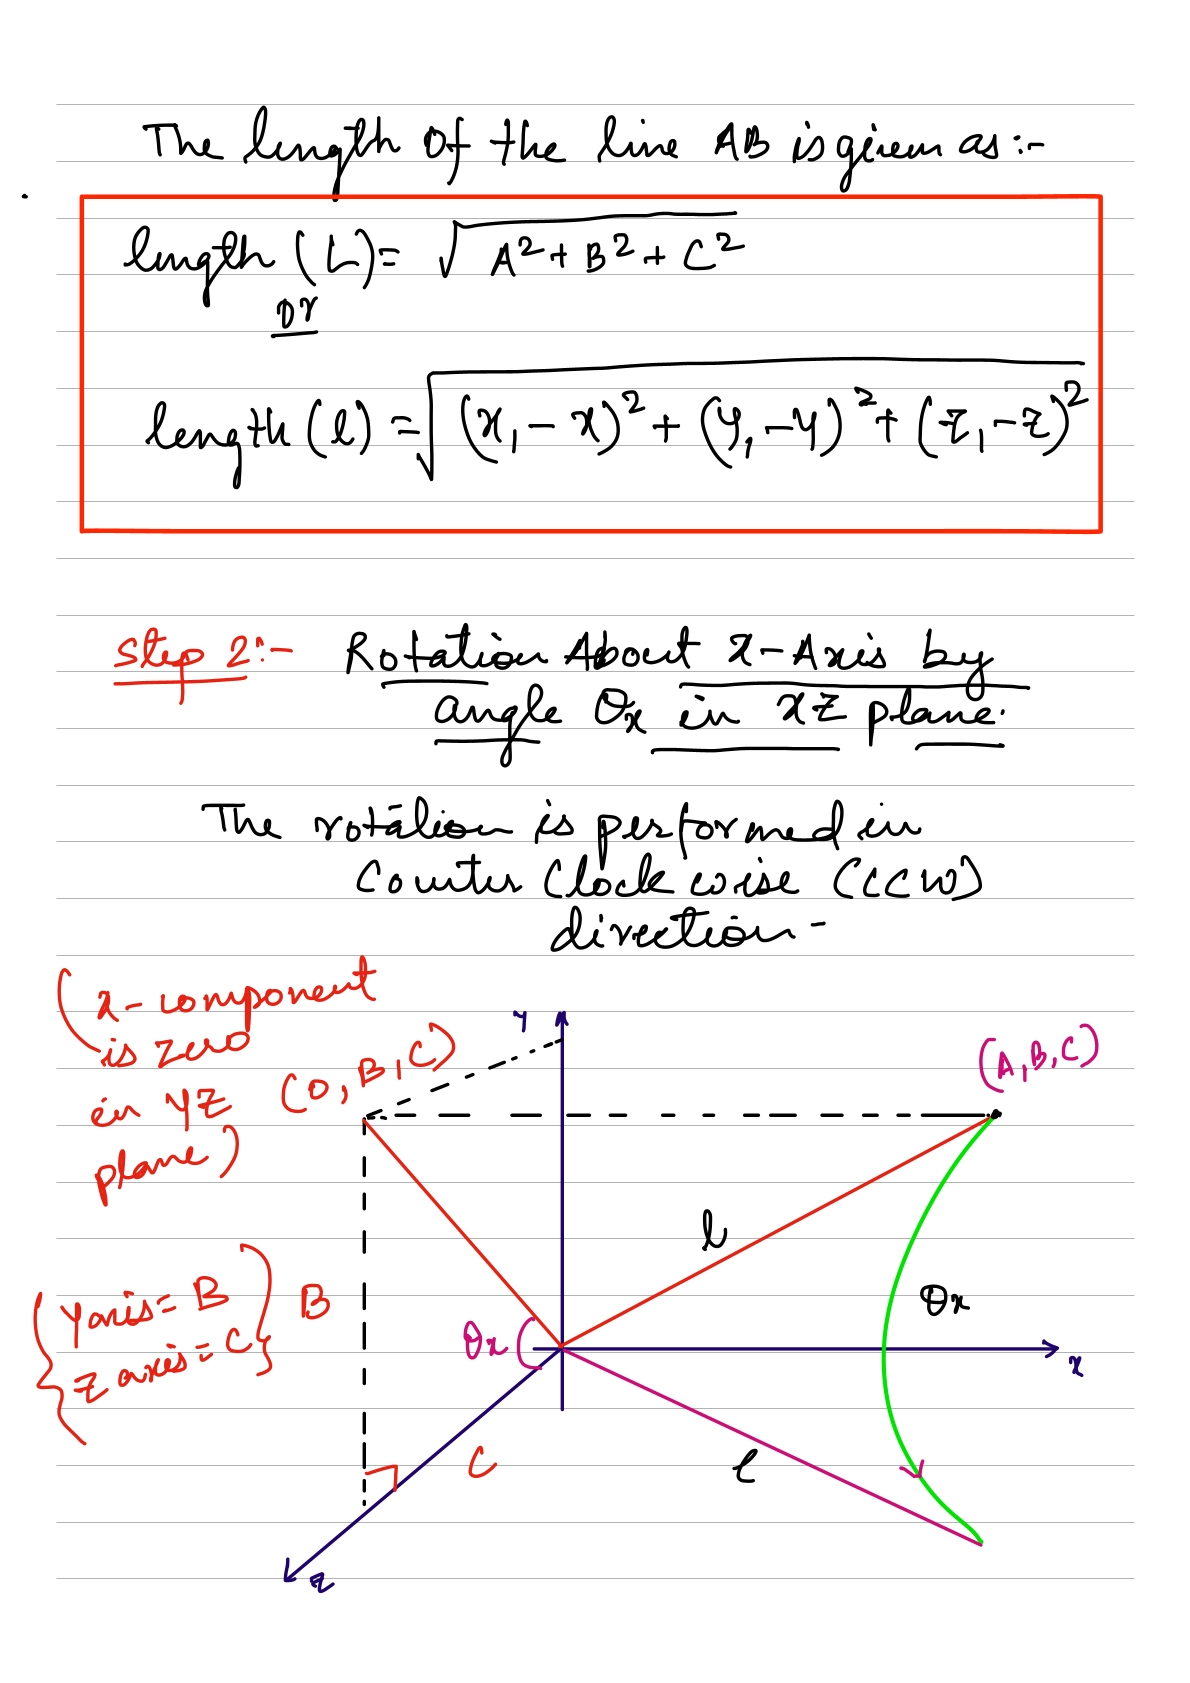 The length of the line AB is given as:-
length (L) = √A² + B² + C²
or
length (l) = √(x₁ - x)² + (y₁ - y)² + (z₁ - z)²
Step 2:- Rotation About X-Axis by
angle θx in XZ plane.
The rotation is performed in
Counter Clockwise (CCW)
direction -
(x-component
is zero
in YZ
plane)
(0, B, C)
y
(A, B, C)
l
θx
Y axis = B
Z axis = C
B
θx
x
C
l
z